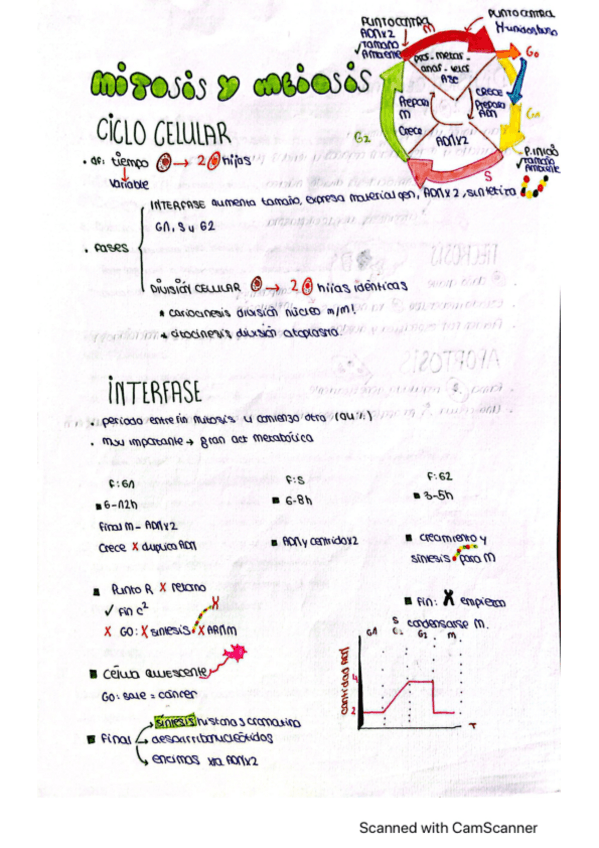 MITOSIS Y MEIOSIS
PUNTO CONTROL
ADN x2
✓ tamaño
Ambiente
M
PUNTO CONTROL
G0
pros - metas -
anas - telos
Prepara
M
Crece
CRECE
Prepara
ADN
ADN x2
G2
G1
S
✓ tamaño
Ambiente
CICLO CELULAR
. de: tiempo → 2 hijas
variable
. FASES
INTERFASE aumenta tamaño, expresa material gen, ADN x 2, sintetiza
G1, S y G2
DIVISIÓN CELULAR → 2 hijas idénticas
* cariocinesis división núcleo m/m!
* citocinesis división citoplasma.
INTERFASE
. período entre fin mitosis y comienzo otra
. muy importante → gran act metabólica
F: G1
6-12h
Final M - ADN x2
Crece X duplica ADN
Punto R X retorno
✓ Fin
X G0: X sintesis X ARNm
Célula quiescente
G0: sale = cáncer
Final
síntesis histonas cromatina
desoxirribonucleótidos
encimas xa ADN x2
F: S
6-8h
ADN y centriolo x2
F: G2
3-5h
crecimiento y
síntesis para M
Fin: X empieza
condensarse M.
cantidad ADN
4
2
G1
S
G2
M
T
Scanned with CamScanner